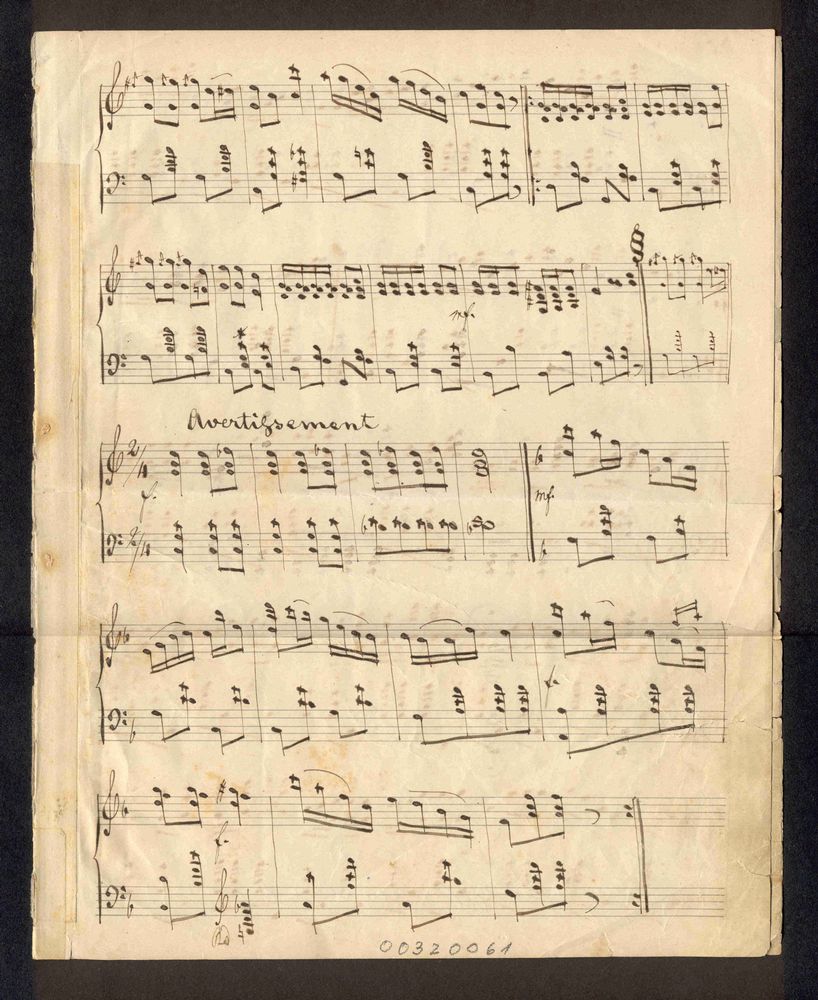 mf.
Avertissement
2/4
f.
mf.
2/4
f.
f.
00320061